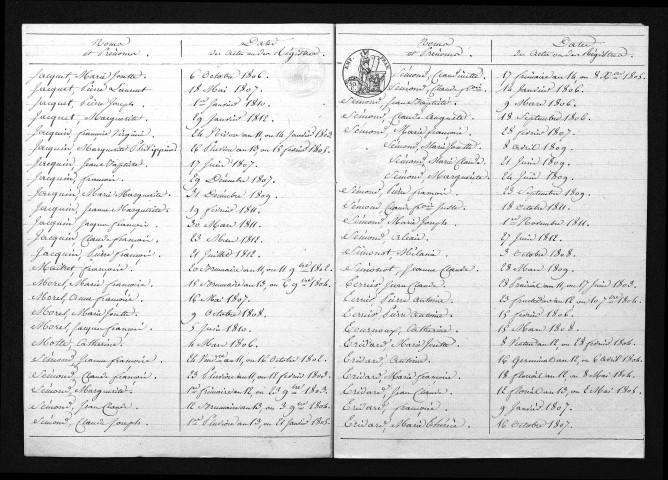 Noms et Prénoms.
Dates des Actes ou des Registres.
Jacquet, Marie Josette. 6 Octobre 1806.
Jacquet, Pierre Laurent 18 Mai 1807.
Jacquet, Pierre Joseph. 1er Janvier 1810.
Jacquet, Marguerite. 19 Janvier 1812.
Jacquin, françoise Virginie. 24 Nivose an 11, ou 14 Janvier 1803.
Jacquin, Marguerite Philippine. 26 Pluviose an 13, ou 15 février 1805.
Jacquin, Jean Baptiste. 17 Juin 1807.
Jacquin, françois. 29 Décembre 1807.
Jacquin, Marie Marguerite. 31 Décembre 1809.
Jacquin, Jeanne Marguerite. 19 février 1811.
Jacquin, Jacques françois. 30 Mars 1811.
Jacquin, Claude françois. 23 Mars 1812.
Jacquin, Pierre françois. 21 Juillet 1812.
Maitret, françoise. 20 Brumaire an 11, ou 11 9bre 1802.
Morel, Marie françoise. 15 Brumaire an 13, ou 6 9bre 1804.
Morel, Anne françoise. 16 Mai 1807.
Morel, Marie Josette. 9 Octobre 1808.
Morel, Jacques françois. 5 Juin 1810.
Motte, Catherine. 4 Mars 1806.
Sémond, Jeanne françoise. 24 Vendre an 11, ou 16 Octobre 1802.
Sémond, Claude françois. 23 Pluviose an 11, ou 12 février 1803.
Sémond, Marguerite. 1er frimaire an 12, ou 23 9bre 1803.
Sémond, Jean Claude. 12 Brumaire an 13, ou 3 9bre 1804.
Sémond, Claude Joseph. 1er Pluviose an 13, ou 21 Janvier 1805.
Noms et Prénoms.
Dates des Actes ou des Registres.
Sémond, 17 frimaire an 14 ou 8 Xbre 1805.
Sémond, Claude 14 Janvier 1806.
Sémond, Jean Baptiste. 9 Mars 1806.
Sémond, Claude Augustte. 18 Septembre 1806.
Sémond, Marie françoise. 28 février 1807.
Sémond, Marie Josette. 8 Avril 1809.
Sémond, Marie Claude. 21 Juin 1809.
Sémond, Marguerite. 24 Juin 1809.
Sémond, Pierre françois. 23 Septembre 1809.
Sémond, Claude fois Juste. 18 Octobre 1811.
Sémond, Marie Josephe. 1er Novembre 1811.
Sémond, Alexis. 27 Juin 1812.
Simonot, Mélanie. 3 Octobre 1808.
Simonot, Jeanne Claude. 28 Mars 1809.
Terrier, Jean Claude. 28 Prairial an 11, ou 17 Juin 1803.
Terrier, Pierre Antoine. 23 fructidor an 12, ou 10 7bre 1804.
Terrier, Pierre Antoine. 15 février 1806.
Tournoux, Catherine. 15 Mars 1808.
Tridard, Marie Josette. 8 Ventose an 12, ou 28 février 1804.
Tridard, Antoine. 16 Germinal an 12, ou 6 Avril 1804.
Tridard, Marie françoise. 18 floréal an 12, ou 8 Mai 1804.
Tridard, Jean Claude. 12 floréal an 13, ou 2 Mai 1805.
Tridard, françoise. 9 Janvier 1807.
Tridard, Marie Thérèse. 16 Octobre 1807.